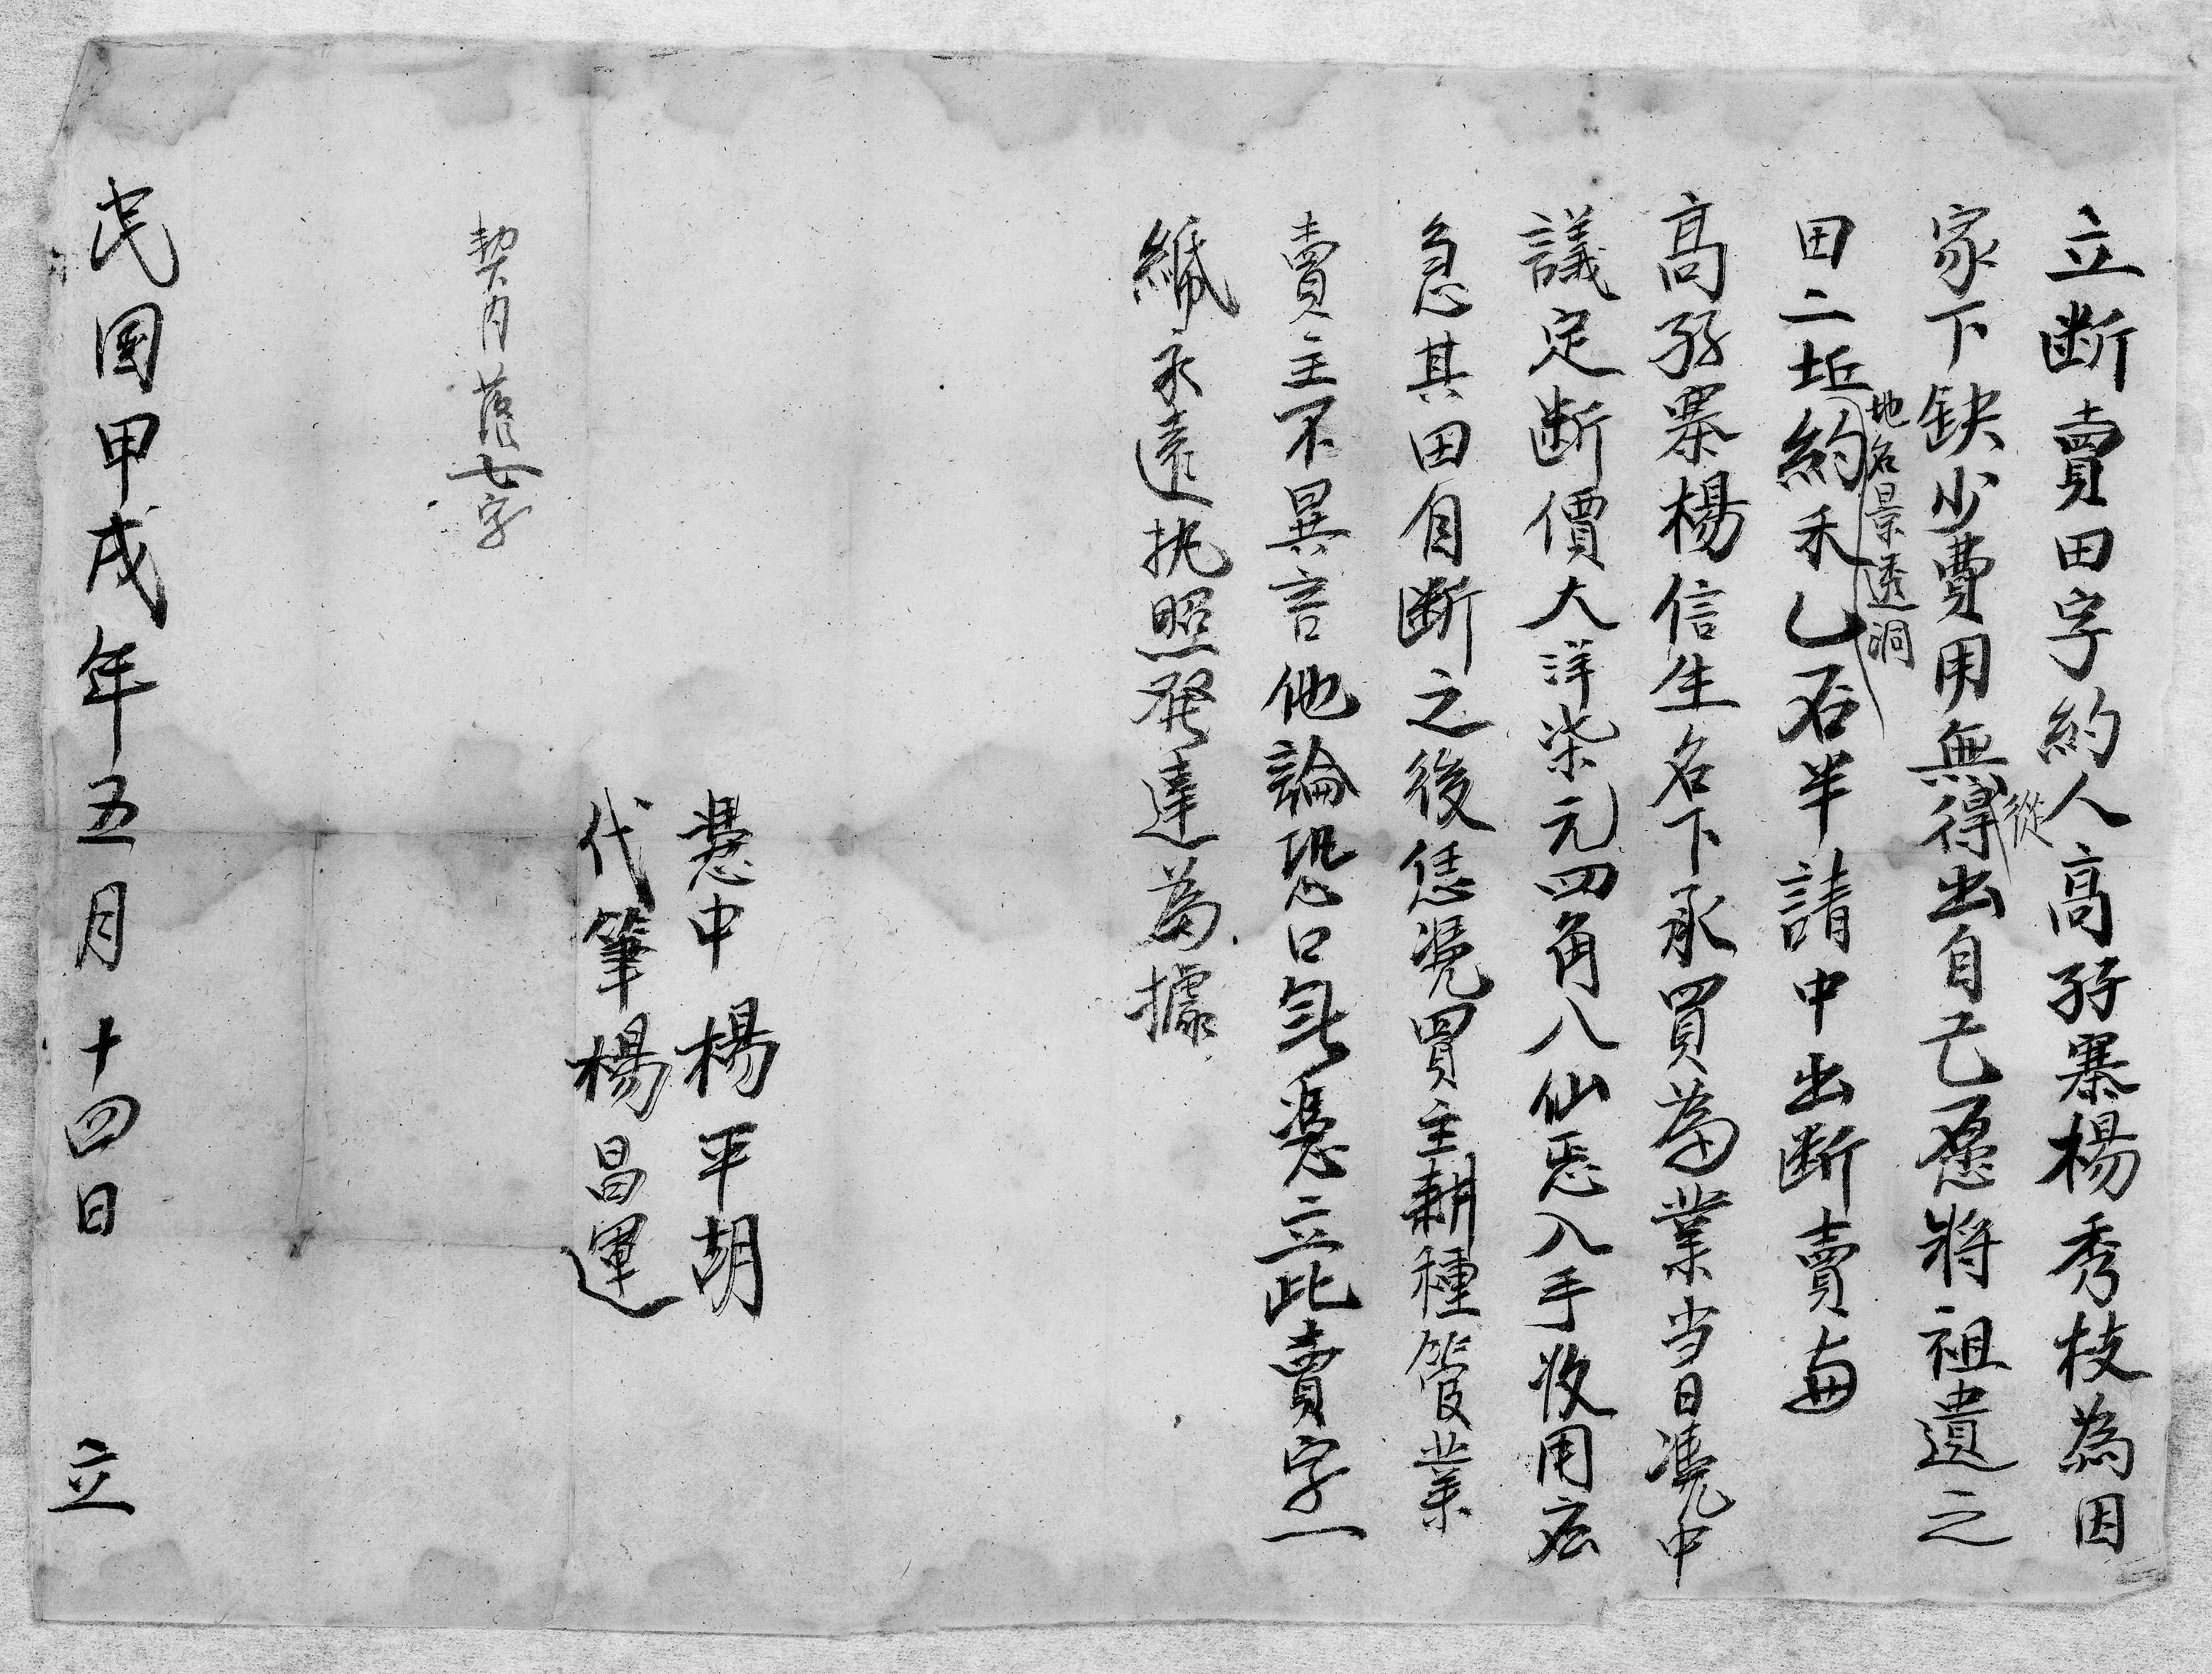 立断賣田字約人高孖寨楊秀枝為因
家下缺少費用無得出自己愿將祖遺之
從
地名景透洞
田二坵約禾乙石半請中出断賣與
高孖寨楊信生名下承買為業当日憑中
議定断價大洋柒元四角八仙悉入手收用應
急其田自断之後恁凭買主耕種管業
賣主不異言他論恐口無憑立此賣字一
紙永遠执照發達為據
憑中楊平胡
代筆楊昌運
契内落七字
民国甲戌年五月十四日 立